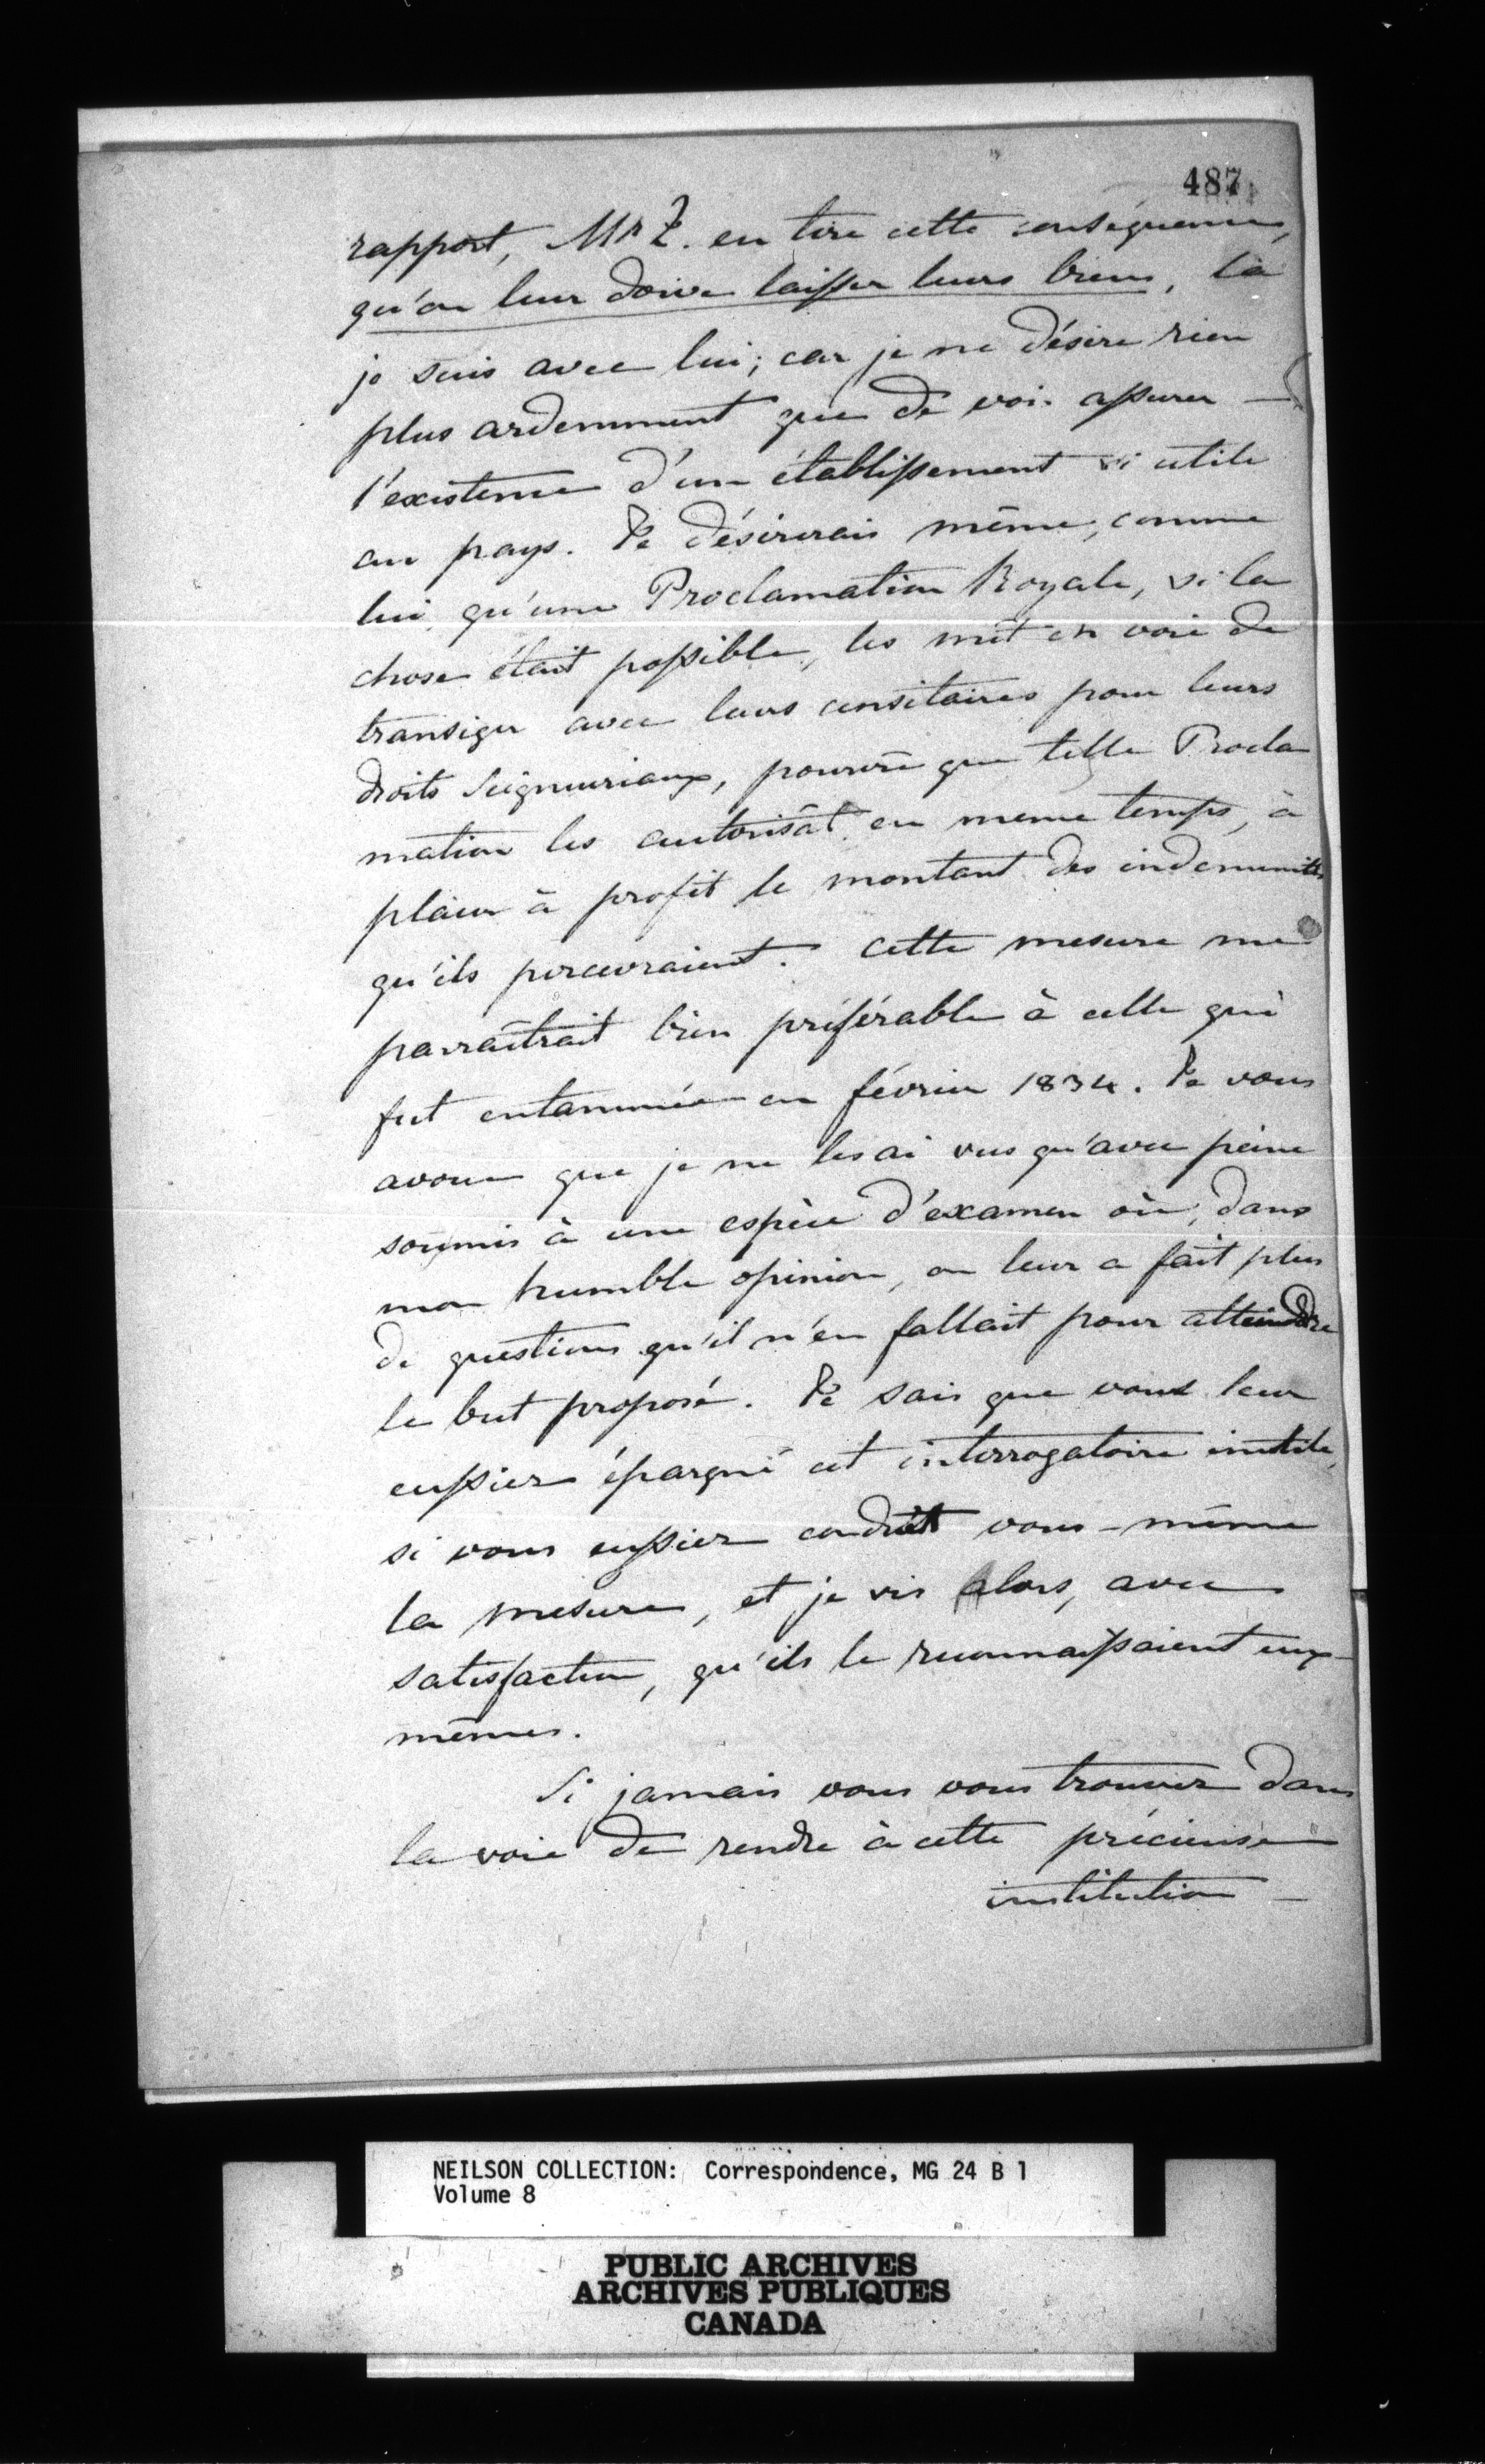 487
rapport, Mr Z. en tire cette conséquence,
qu'on leur doive laisser leurs biens, là
je suis avec lui; car je ne désire rien
plus ardemment que de voir assurer —
l'existence d'un établissement si utile
au pays. Je désirerais même, comme
lui, qu'une Proclamation Royale, si la
chose était possible, les mit en voie de
transiger avec leurs censitaires pour leurs
droits Seigneuriaux, pourvu que telle Procla
mation les autorisât en même temps, à
placer à profit le montant des indemnités
qu'ils percevraient. Cette mesure me
paraîtrait bien préférable à celle qui
fut entammée en février 1834. Je vous
avoue que je ne les ai vus qu'avec peine
soumis à une espèce d'examen où, dans
mon humble opinion, on leur a fait plus
de questions qu'il n'en fallait pour atteindre
le but proposé. Je sais que vous leur
eussiez épargné cet interrogatoire inutile,
si vous eussiez conduit vous-même
la mesure, et je vis alors, avec
satisfaction, qu'ils le reconnaissaient eux-
mêmes.
Si jamais vous vous trouvez dans
la voie de rendre à cette précieuse
institution —
NEILSON COLLECTION: Correspondence, MG 24 B 1
Volume 8
PUBLIC ARCHIVES
ARCHIVES PUBLIQUES
CANADA